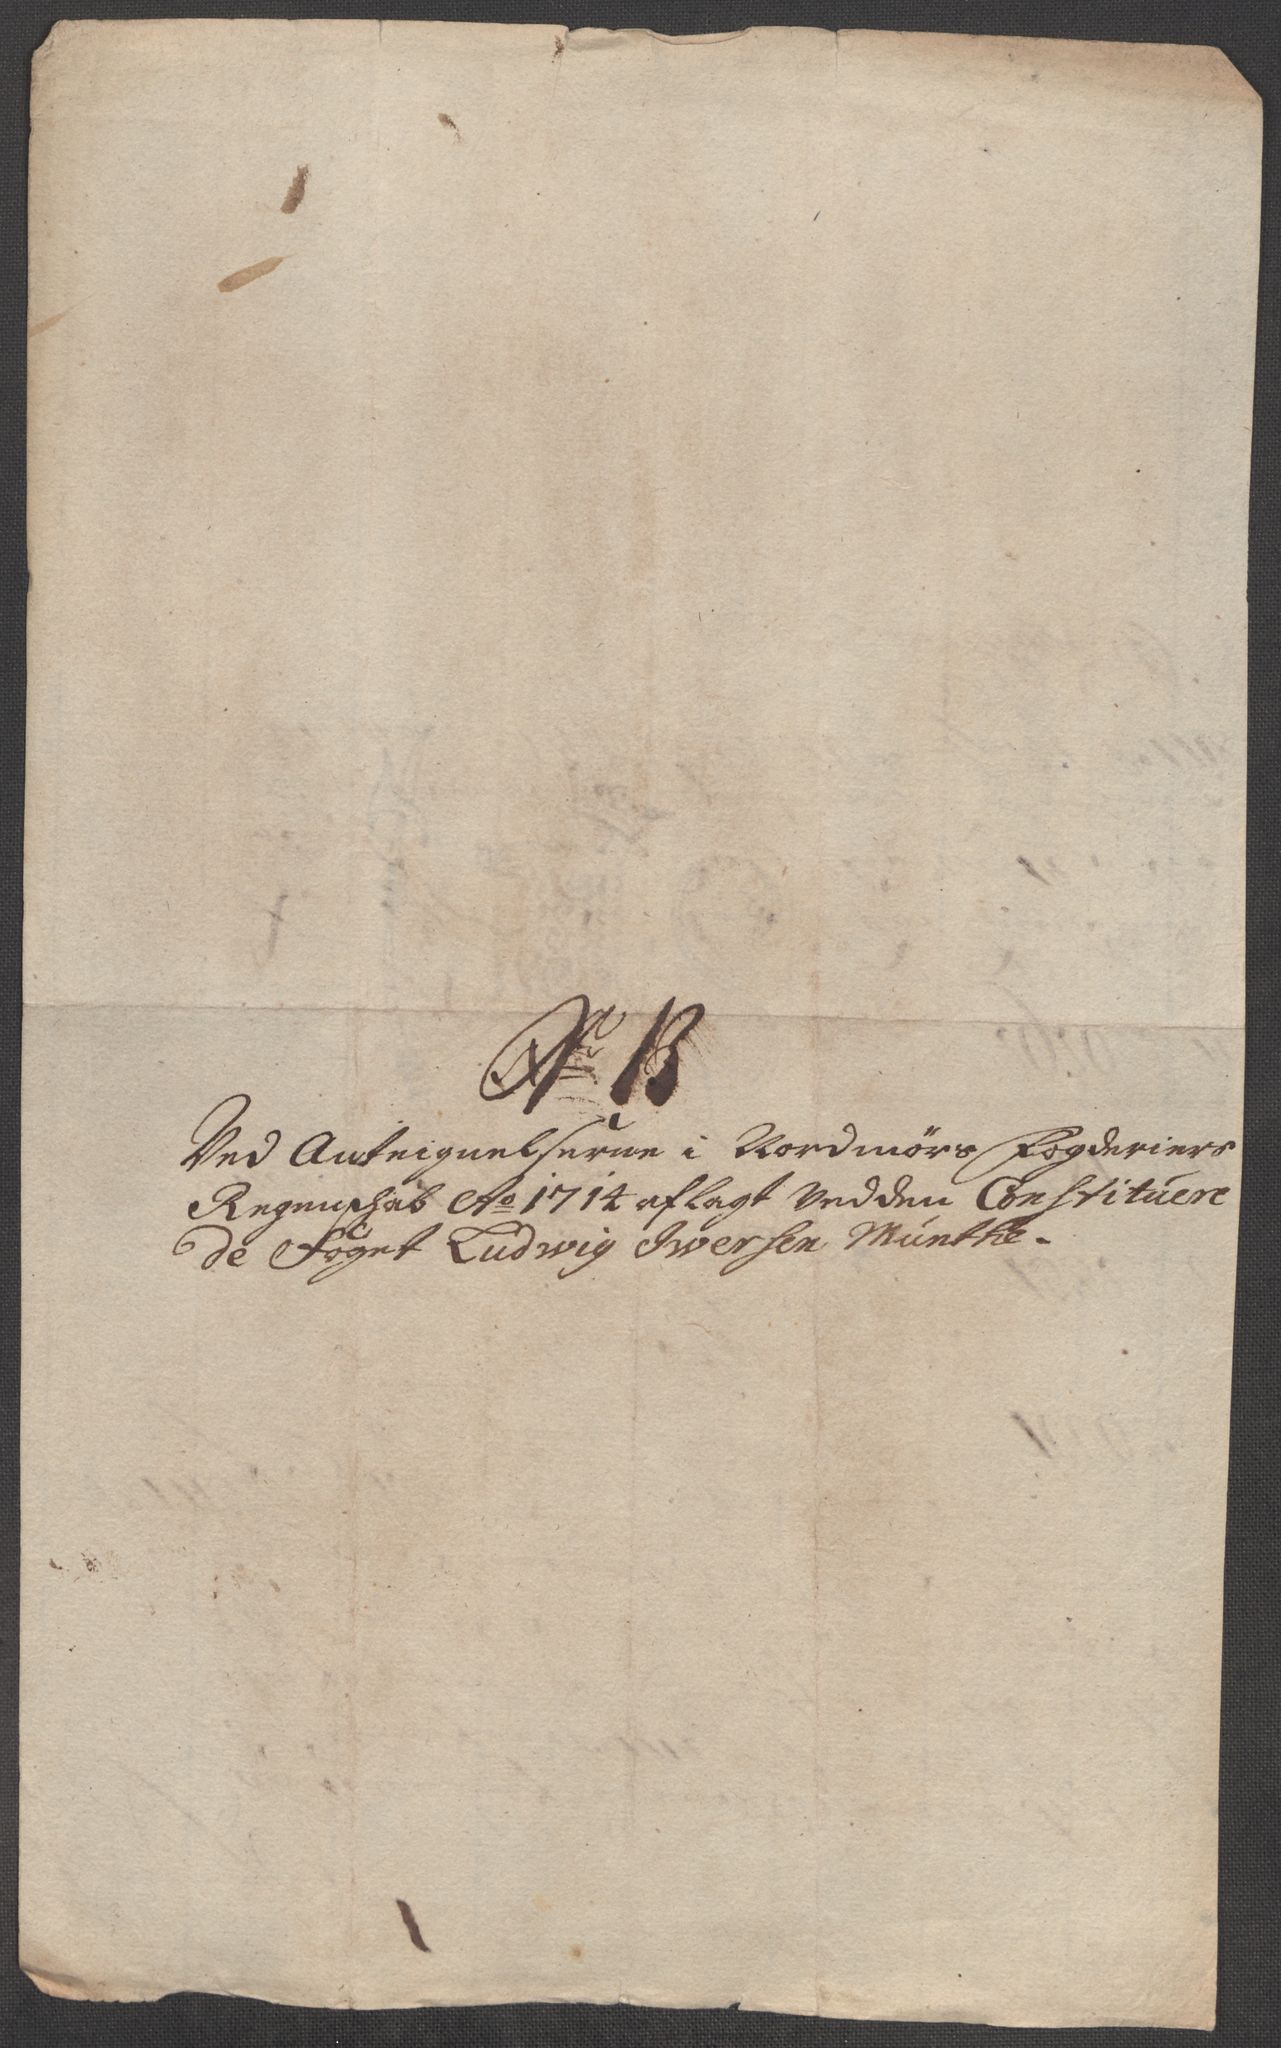 No B
Ved Anteignelserne i Nordmørs Fogderiers
Regenschab Ao 1714 aflagt Ved den Constituere
de Foget Ludwig Iwersen Munthe.